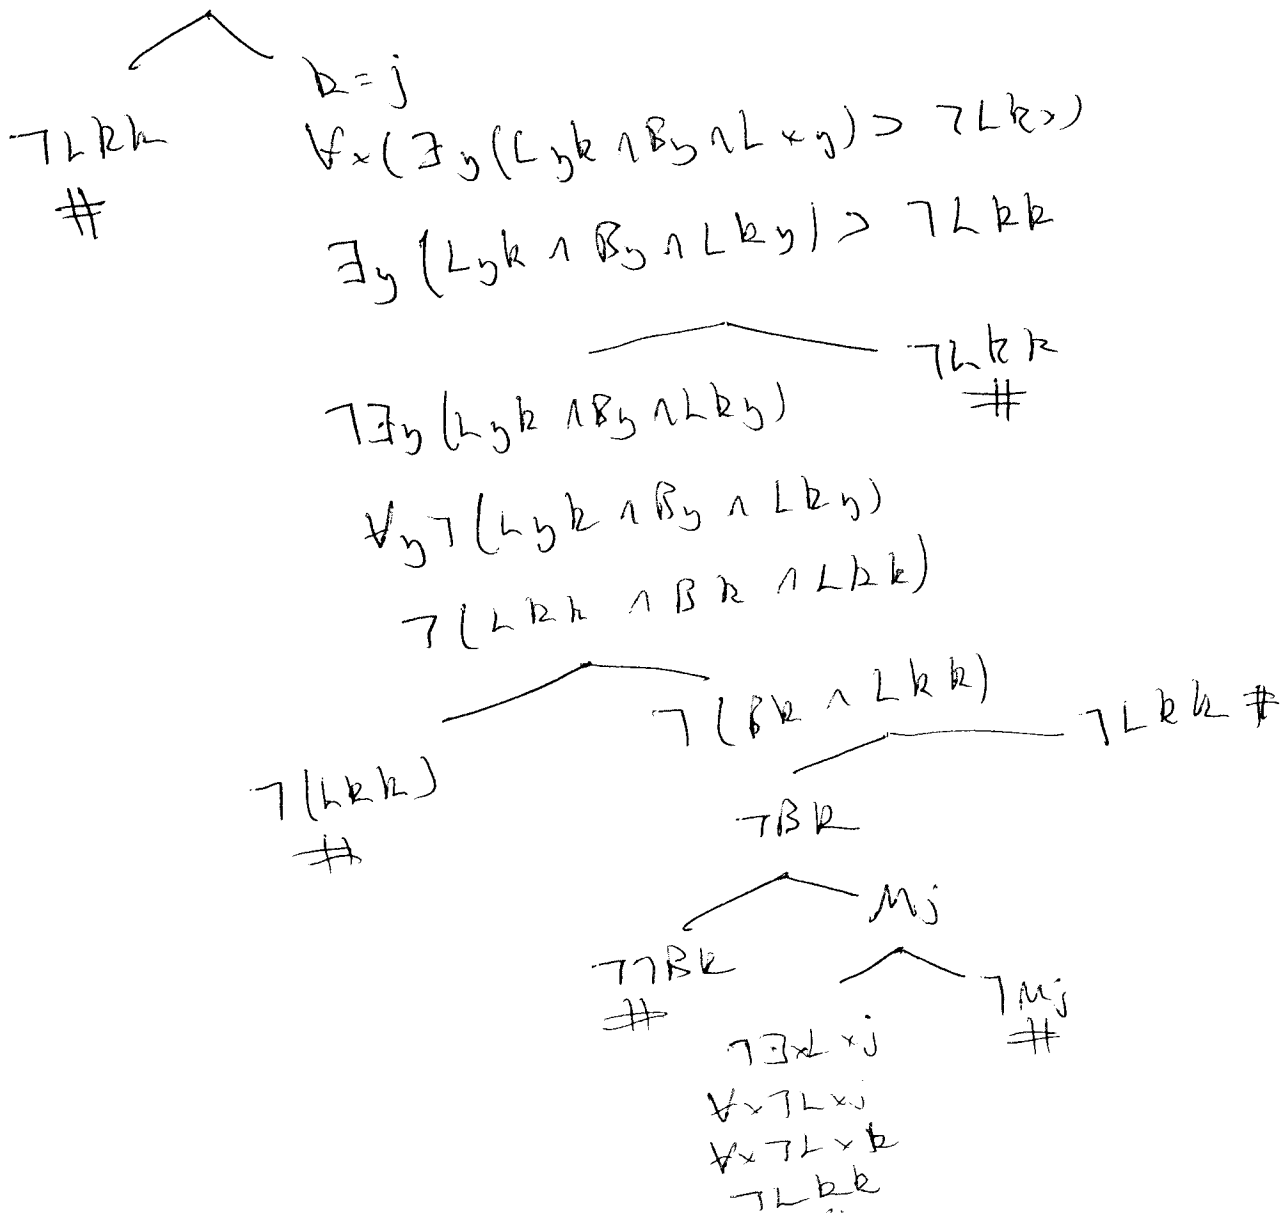 k = j
¬Lkk
∀x(∃y(Lyk ∧ By ∧ Lxy) ⊃ ¬Lkx)
#
∃y(Lyk ∧ By ∧ Lky) ⊃ ¬Lkk
¬Lkk
#
¬∃y(Lyk ∧ By ∧ Lky)
∀y¬(Lyk ∧ By ∧ Lky)
¬(Lkk ∧ Bk ∧ Lkk)
¬(Bk ∧ Lkk)
¬Lkk #
¬(Lkk)
#
¬Bk
Mj
¬¬Bk
#
¬Mj
#
¬∃xLxj
∀x¬Lxj
∀x¬Lxk
¬Lkk